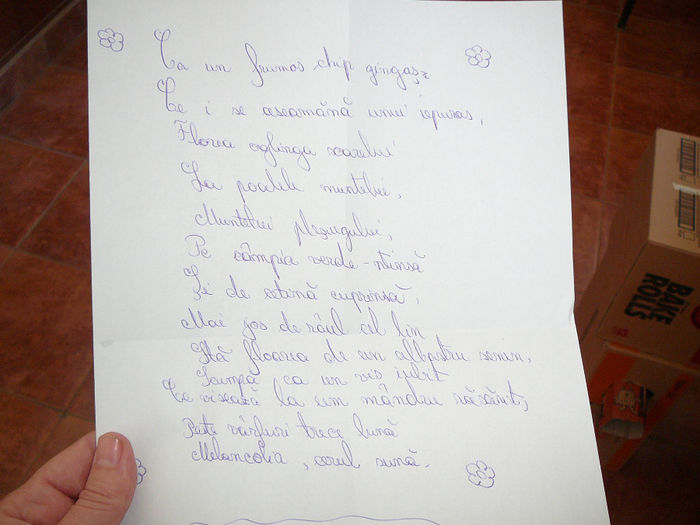 Ca un frumos chip gingaș
Ce i se aseamănă unui iepuras,
Floarea oglinga soarelui
La poalele muntelui,
Muntelui pleșuvgului,
Pe câmpia verde-ntinsă
Și de odină cuprinsă,
Mai jos de râul cel lin
Stă floarea de un albastru senin,
Scumpă ca un vis iubit
Ce visează la un mândru răsărit,
Peste vârfuri trece lună
Melancolia, cerul sună.
BAKE
ROLLS